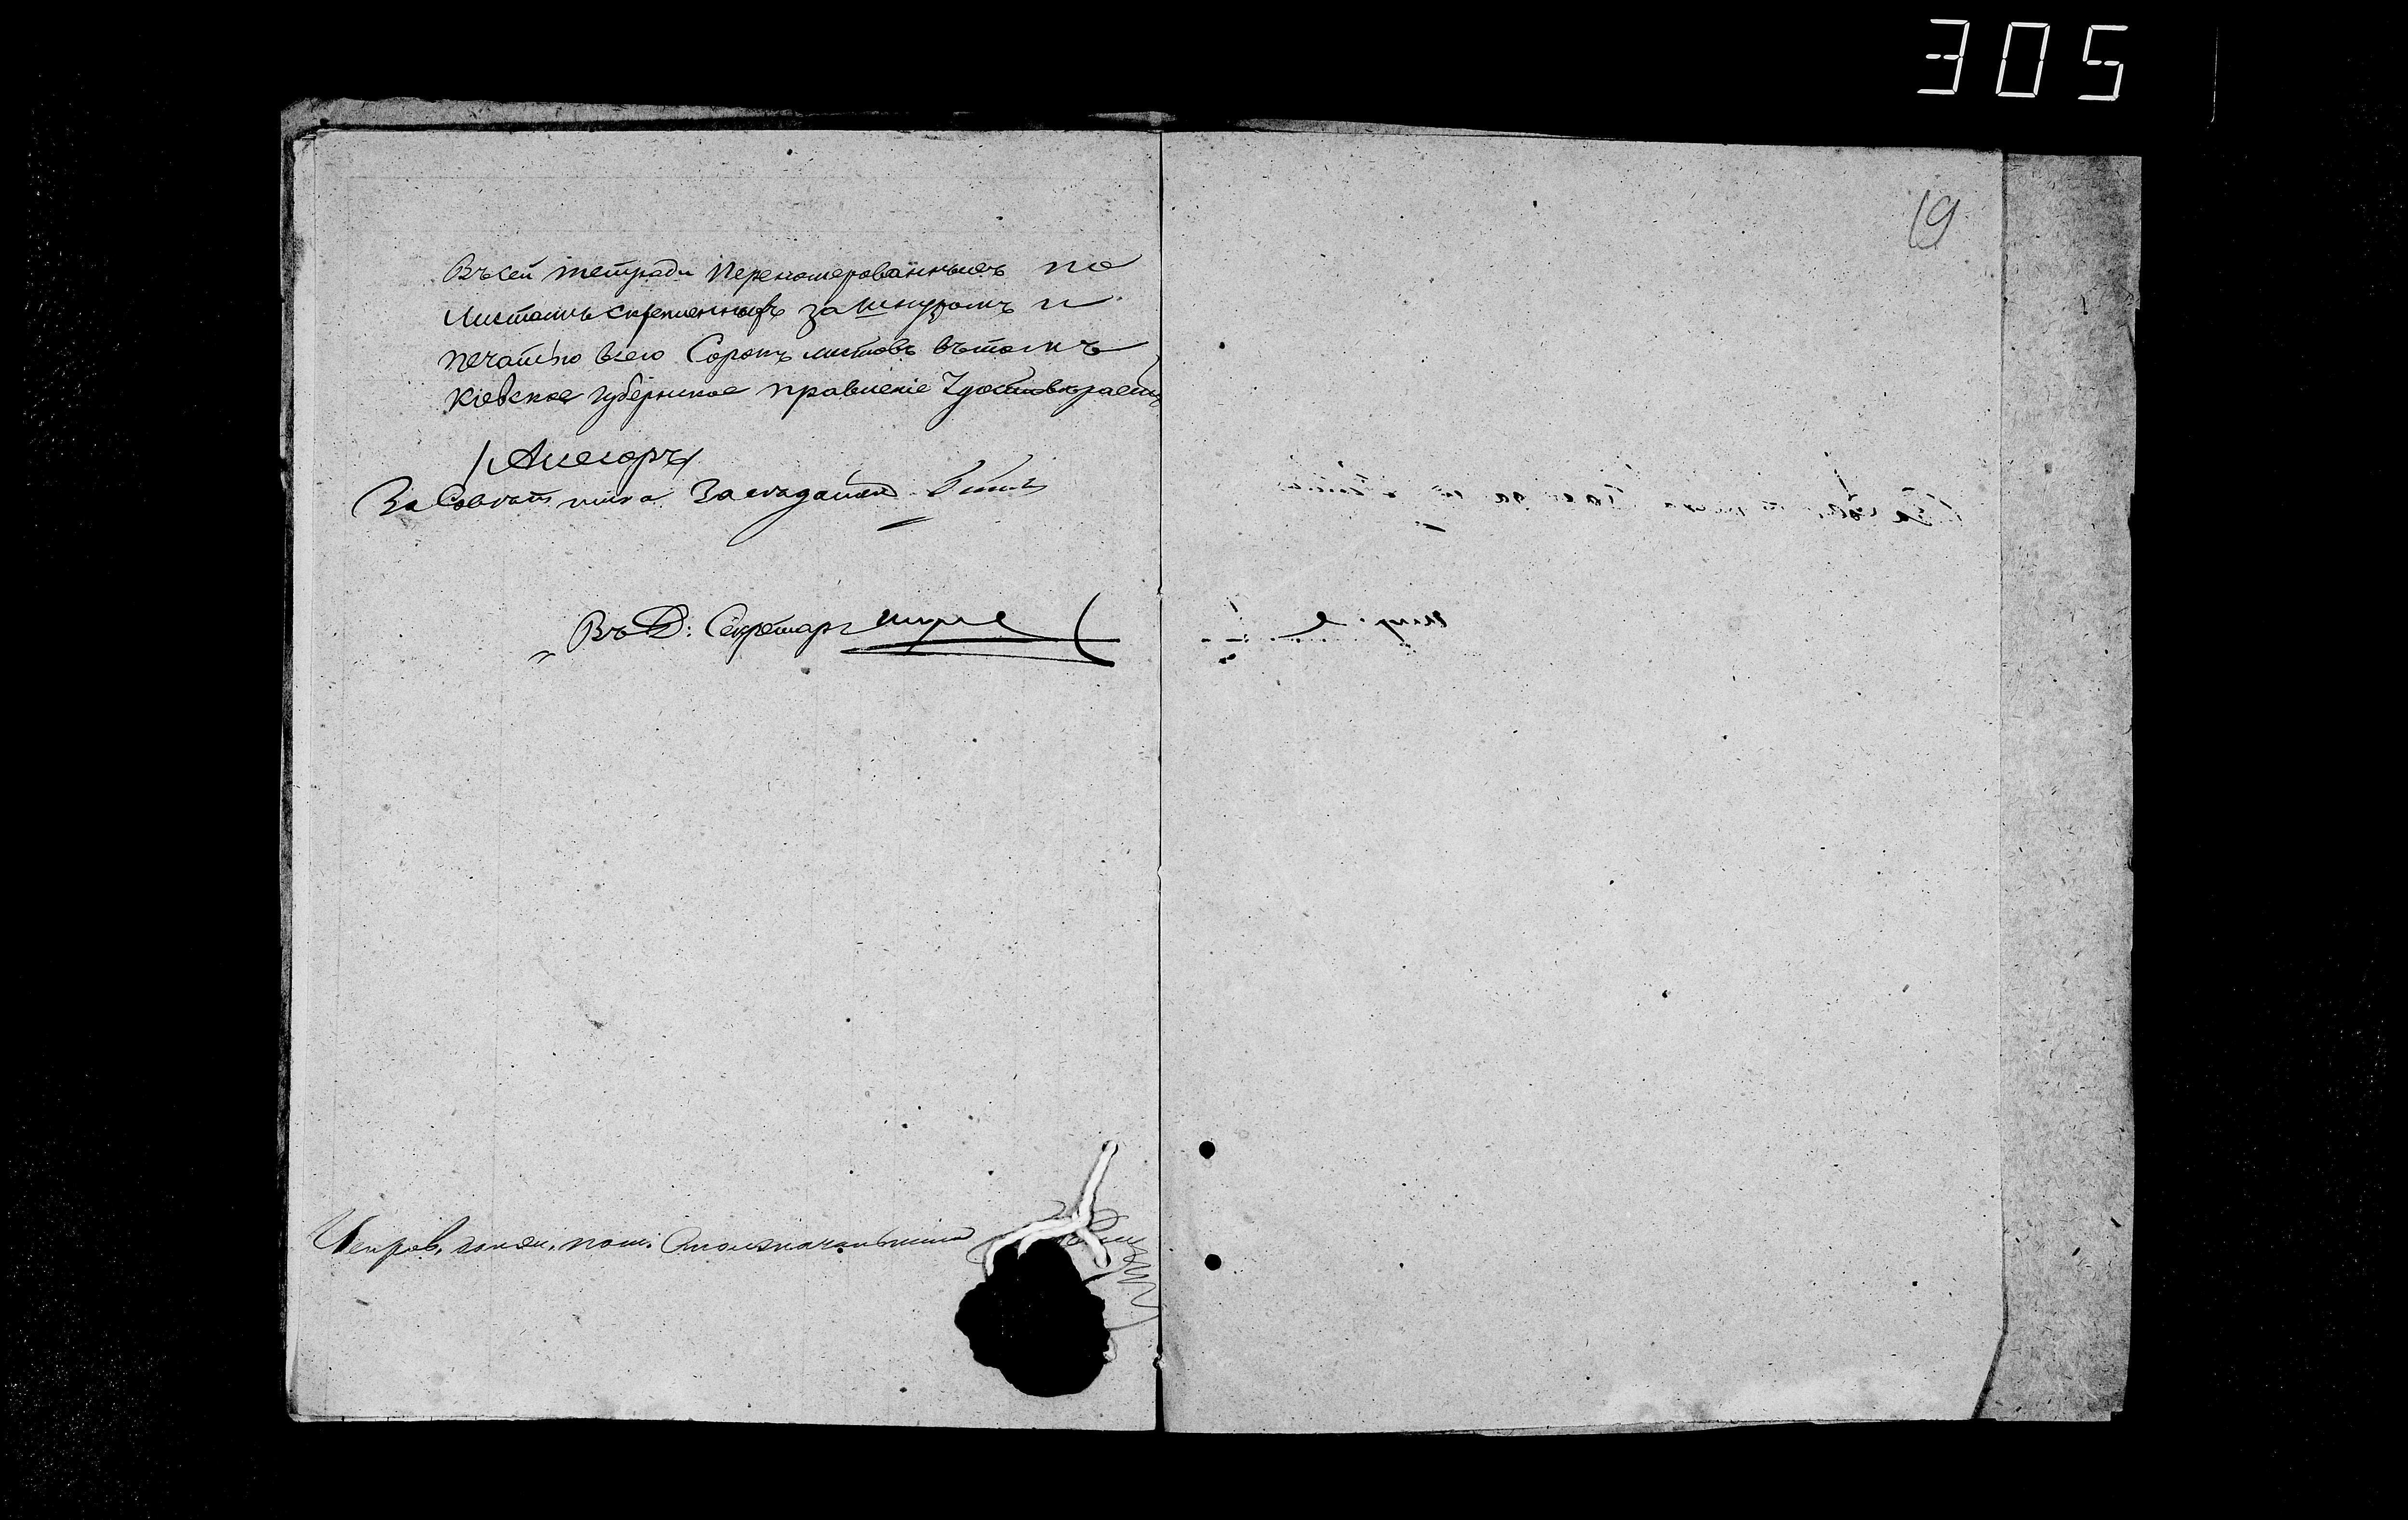 305
19
Въ сей тетради перономерованныхъ по
листамъ скрепленныхъ за шнуромъ и
печатью всего Сорокъ листовъ въ томъ
Кіевское губернское правленіе Удостоверяетъ
/Асесоръ/
За Советника Заседатель
Въ Д: Секретарь
Исправ. долж. пом: Столоначальника